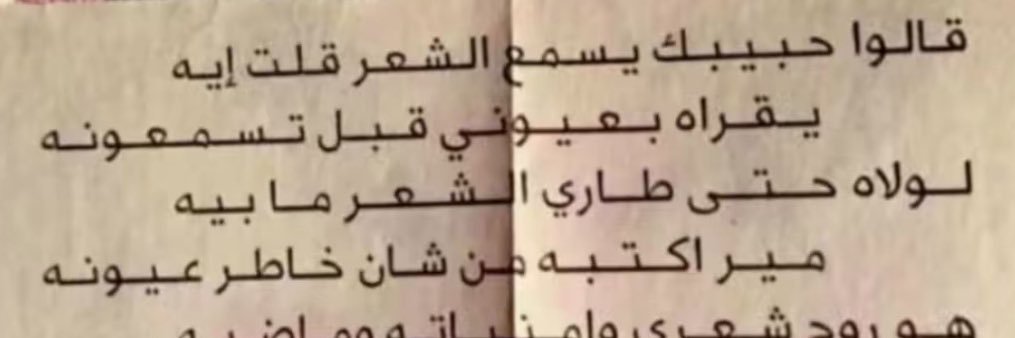 قالوا حبيبك يسمع الشعر قلت إيه
يقراه بعيوني قبل تسمعونه
لولاه حتى طاري الشعر ما بيه
مير اكتبه من شان خاطر عيونه
هو روح شعري